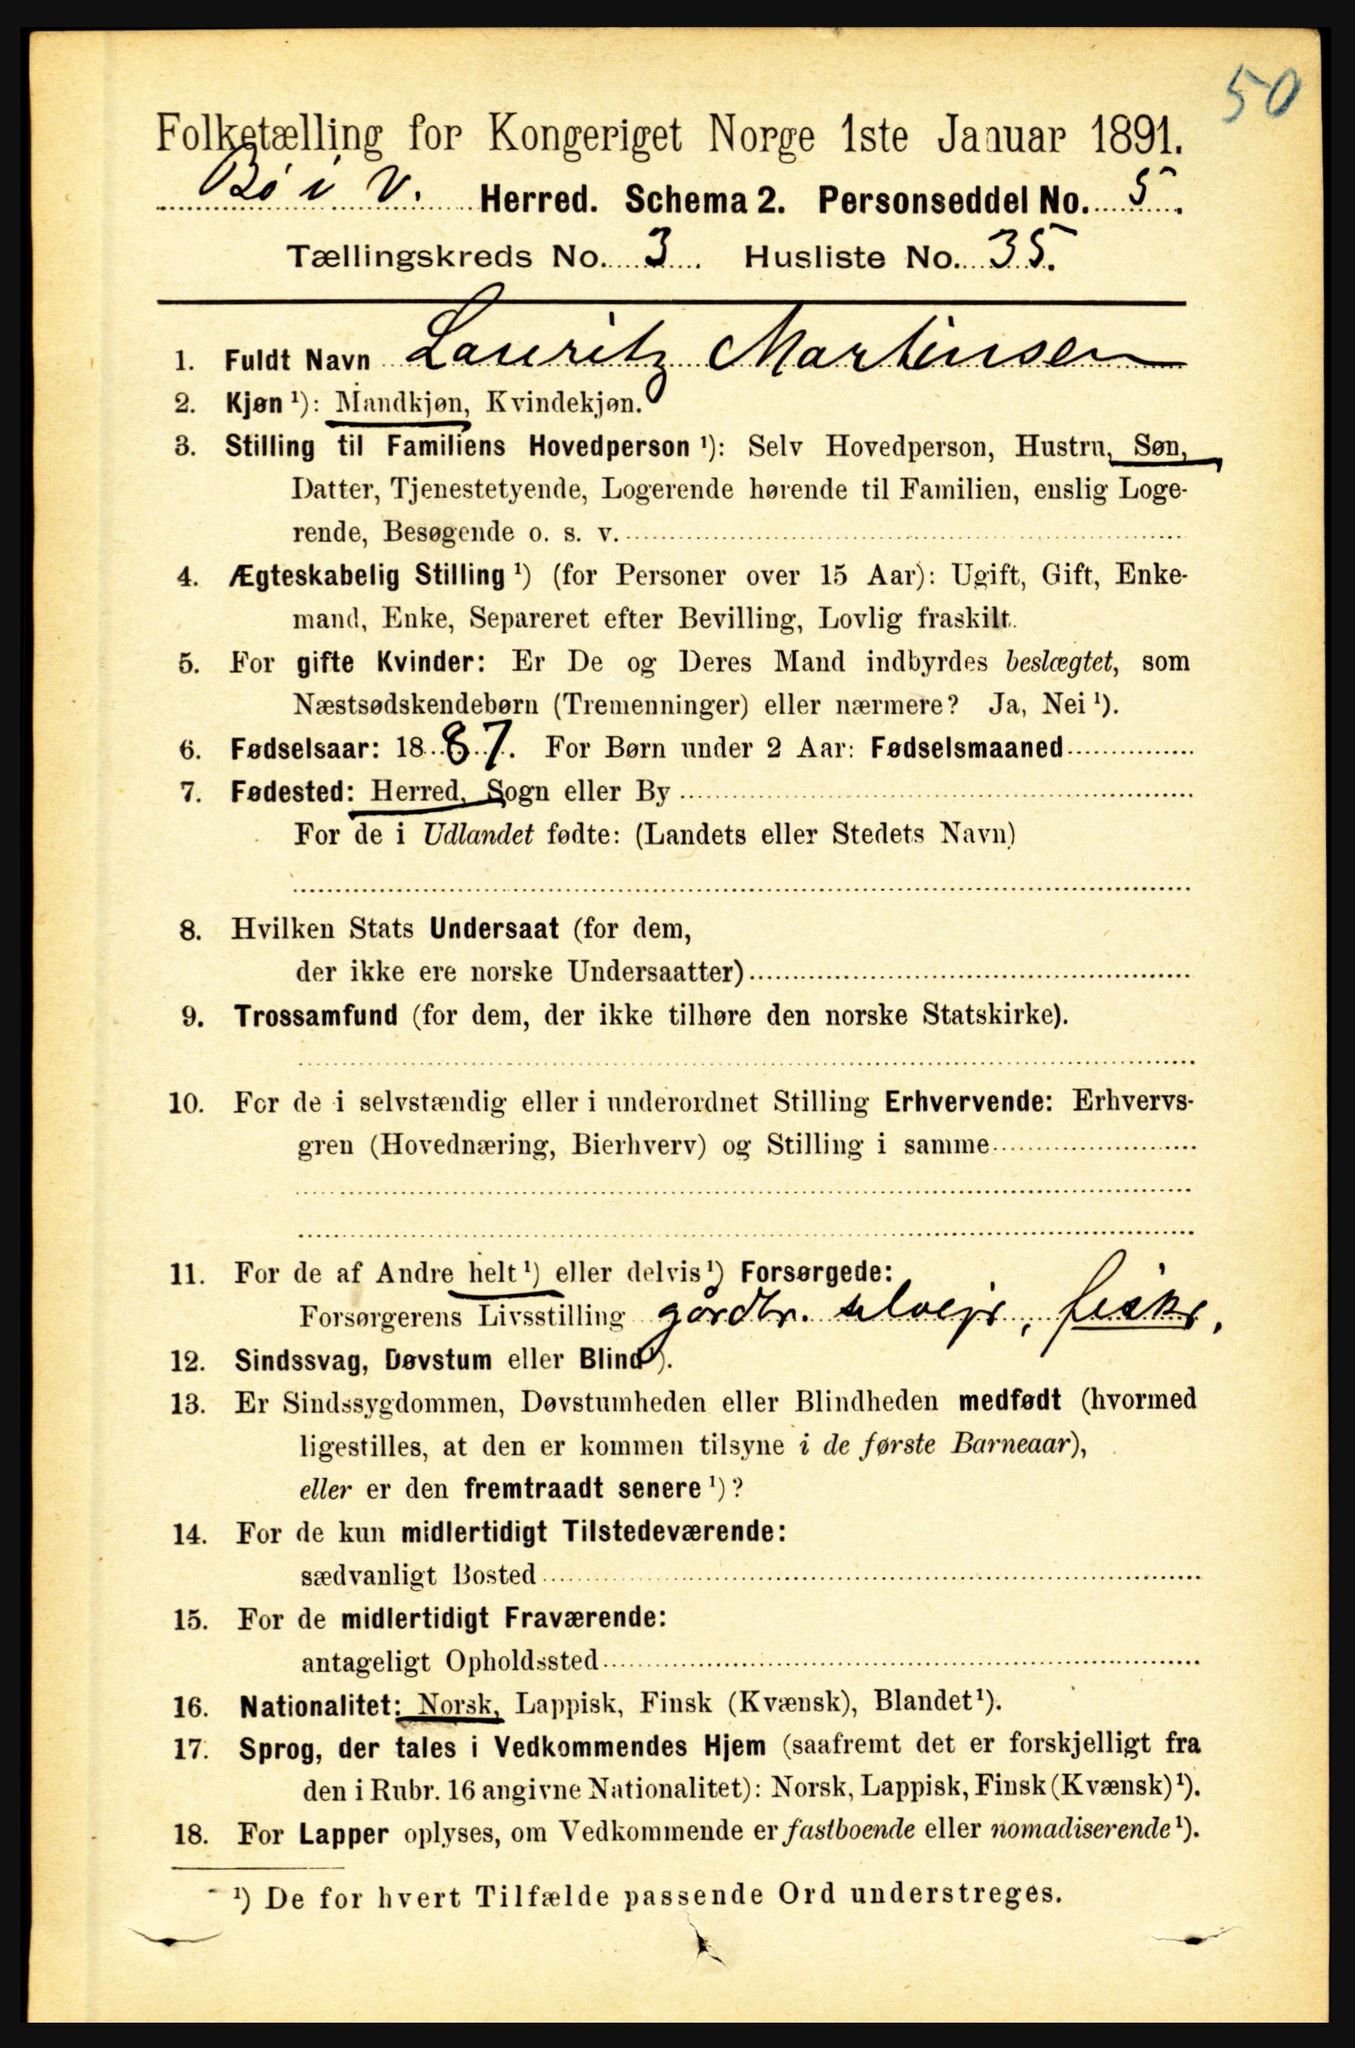 50
Folketælling for Kongeriget Norge 1ste Januar 1891.
Bø i V. Herred. Schema 2. Personseddel No. 5.
Tællingskreds No. 3. Husliste No. 35.
1. Fuldt Navn Lauritz Martinsen
2. Kjøn ¹): Mandkjøn, Kvindekjøn.
3. Stilling til Familiens Hovedperson ¹): Selv Hovedperson, Hustru, Søn,
Datter, Tjenestetyende, Logerende hørende til Familien, enslig Loge-
rende, Besøgende o. s. v.
4. Ægteskabelig Stilling ¹) (for Personer over 15 Aar): Ugift, Gift, Enke-
mand, Enke, Separeret efter Bevilling, Lovlig fraskilt.
5. For gifte Kvinder: Er De og Deres Mand indbyrdes beslægtet, som
Næstsødskendebørn (Tremenninger) eller nærmere? Ja, Nei ¹).
6. Fødselsaar: 1887. For Børn under 2 Aar: Fødselsmaaned
7. Fødested: Herred, Sogn eller By
For de i Udlandet fødte: (Landets eller Stedets Navn)
8. Hvilken Stats Undersaat (for dem,
der ikke ere norske Undersaatter)
9. Trossamfund (for dem, der ikke tilhøre den norske Statskirke).
10. For de i selvstændig eller i underordnet Stilling Erhvervende: Erhvervs-
gren (Hovednæring, Bierhverv) og Stilling i samme
11. For de af Andre helt ¹) eller delvis ¹) Forsørgede:
Forsørgerens Livsstilling gårdbr. selvejr, fiskr,
12. Sindssvag, Døvstum eller Blind ¹).
13. Er Sindssygdommen, Døvstumheden eller Blindheden medfødt (hvormed
ligestilles, at den er kommen tilsyne i de første Barneaar),
eller er den fremtraadt senere ¹)?
14. For de kun midlertidigt Tilstedeværende:
sædvanligt Bosted
15. For de midlertidigt Fraværende:
antageligt Opholdssted
16. Nationalitet: Norsk, Lappisk, Finsk (Kvænsk), Blandet ¹).
17. Sprog, der tales i Vedkommendes Hjem (saafremt det er forskjelligt fra
den i Rubr. 16 angivne Nationalitet): Norsk, Lappisk, Finsk (Kvænsk) ¹).
18. For Lapper oplyses, om Vedkommende er fastboende eller nomadiserende ¹).
¹) De for hvert Tilfælde passende Ord understreges.